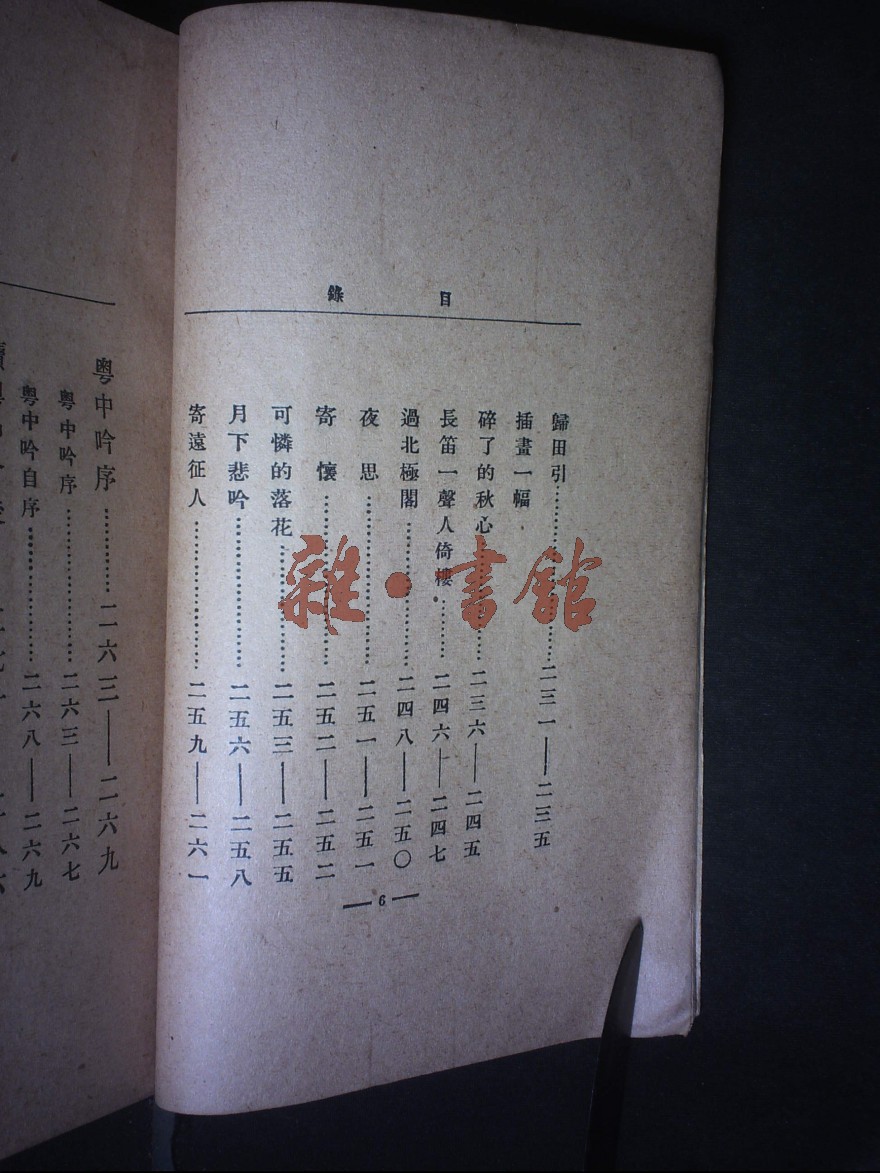 目錄
歸田引……二三一——二三五
插畫一幅
碎了的秋心……二三六——二四五
長笛一聲人倚樓……二四六——二四七
過北極閣……二四八——二五〇
夜思……二五一——二五一
寄懷……二五二——二五二
可憐的落花……二五三——二五五
月下悲吟……二五六——二五八
寄遠征人……二五九——二六一
— 6 —
粵中吟序……二六三——二六九
粵中吟序……二六三——二六七
粵中吟自序……二六八——二六九
雜·書館